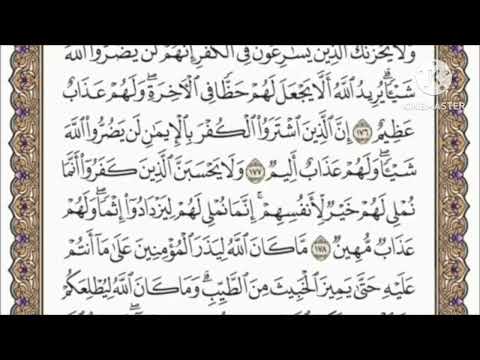 وَلَا يَحْزُنكَ الَّذِينَ يُسَارِعُونَ فِي الْكُفْرِ إِنَّهُمْ لَن يَضُرُّوا اللَّهَ
شَيْئًا يُرِيدُ اللَّهُ أَلَّا يَجْعَلَ لَهُمْ حَظًّا فِي الْآخِرَةِ وَلَهُمْ عَذَابٌ
عَظِيمٌ ١٧٦ إِنَّ الَّذِينَ اشْتَرَوُا الْكُفْرَ بِالْإِيمَانِ لَن يَضُرُّوا اللَّهَ
شَيْئًا وَلَهُمْ عَذَابٌ أَلِيمٌ ١٧٧ وَلَا يَحْسَبَنَّ الَّذِينَ كَفَرُوا أَنَّمَا
نُمْلِي لَهُمْ خَيْرٌ لِّأَنفُسِهِمْ إِنَّمَا نُمْلِي لَهُمْ لِيَزْدَادُوا إِثْمًا وَلَهُمْ
عَذَابٌ مُّهِينٌ ١٧٨ مَّا كَانَ اللَّهُ لِيَذَرَ الْمُؤْمِنِينَ عَلَىٰ مَا أَنتُمْ
عَلَيْهِ حَتَّىٰ يَمِيزَ الْخَبِيثَ مِنَ الطَّيِّبِ وَمَا كَانَ اللَّهُ لِيُطْلِعَكُمْ
KINEMASTER